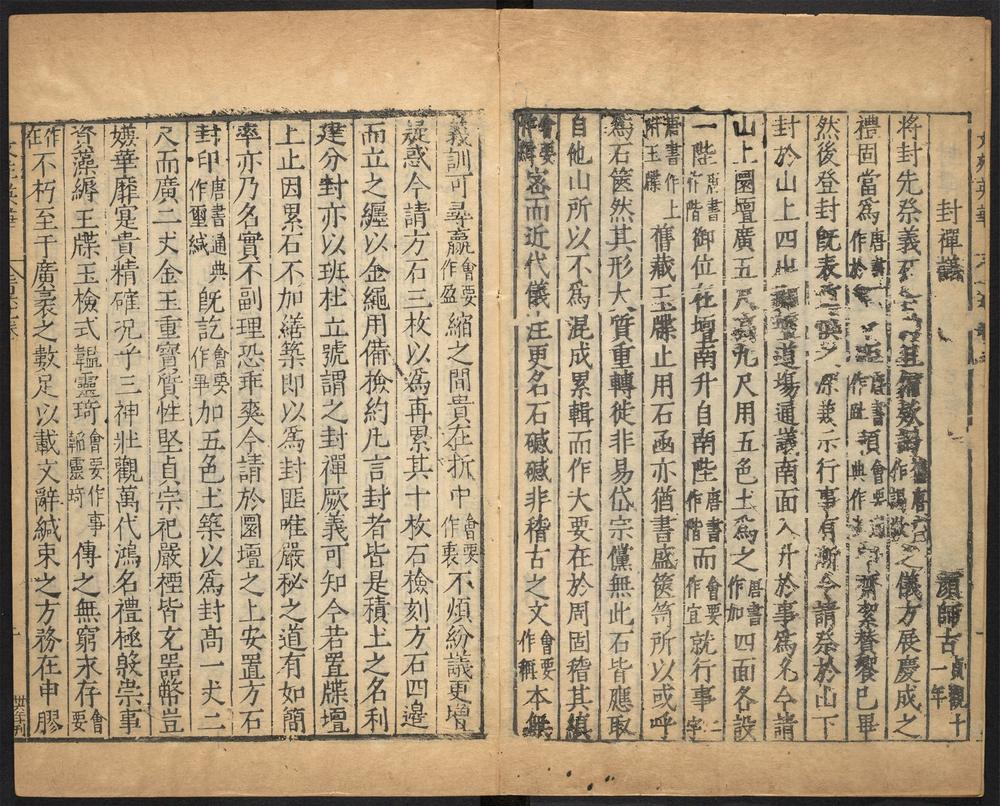 封禪議 顏師古 貞觀十一年
將封先祭義 儀方展慶成之
禮固當爲 唐書作於 須 會要 齋絜贊饗已畢
然後登封旣表 示行事有漸今請祭於山下
封於山上四 道場通議南面入升於事爲允今請
山上圜壇廣五 九尺用五色土爲之 唐書作加 四面各設
一陛 唐書作階 御位在壇南升自南陛 唐書作階 而 會要作宜 就行事 二字
唐書作上府玉牒 舊藏玉牒止用石函亦猶書盛篋笥所以或呼
爲石篋然其形大質重轉徙非易岱宗儻無此石皆應取
自他山所以不爲混成累輯而作大要在於周固稽其縝
會要 密而近代儀注更名石𥗬𥗬非稽古之文 會要作稱 本無
義訓可尋贏 會要作盈 縮之間貴在折中 會要作衷 不煩紛議更增
疑惑今請方石三枚以爲再累其十枚石檢刻方石四邊
而立之纏以金繩用備檢約凡言封者皆是積土之名利
建分封亦以班社立號謂之封禪厥義可知今若置牒壇
上止因累石不加繕築即以爲封匪唯嚴秘之道有如簡
率亦乃名實不副理恐乖爽今請於圜壇之上安置方石
封印 唐書通典作璽緘 旣訖 會要作事 加五色土築以爲封高一丈二
尺而廣二丈金玉重寶質性堅貞宗祀嚴禋皆充器幣豈
嫌華靡寔貴精確況乎三神壯觀萬代鴻名禮極殷崇事
資藻縟玉牒玉檢式韞靈琦 會要作事韜靈琦 傳之無窮求存 會要
作在 不朽至于廣袤之數足以載文辭緘束之方務在申膠